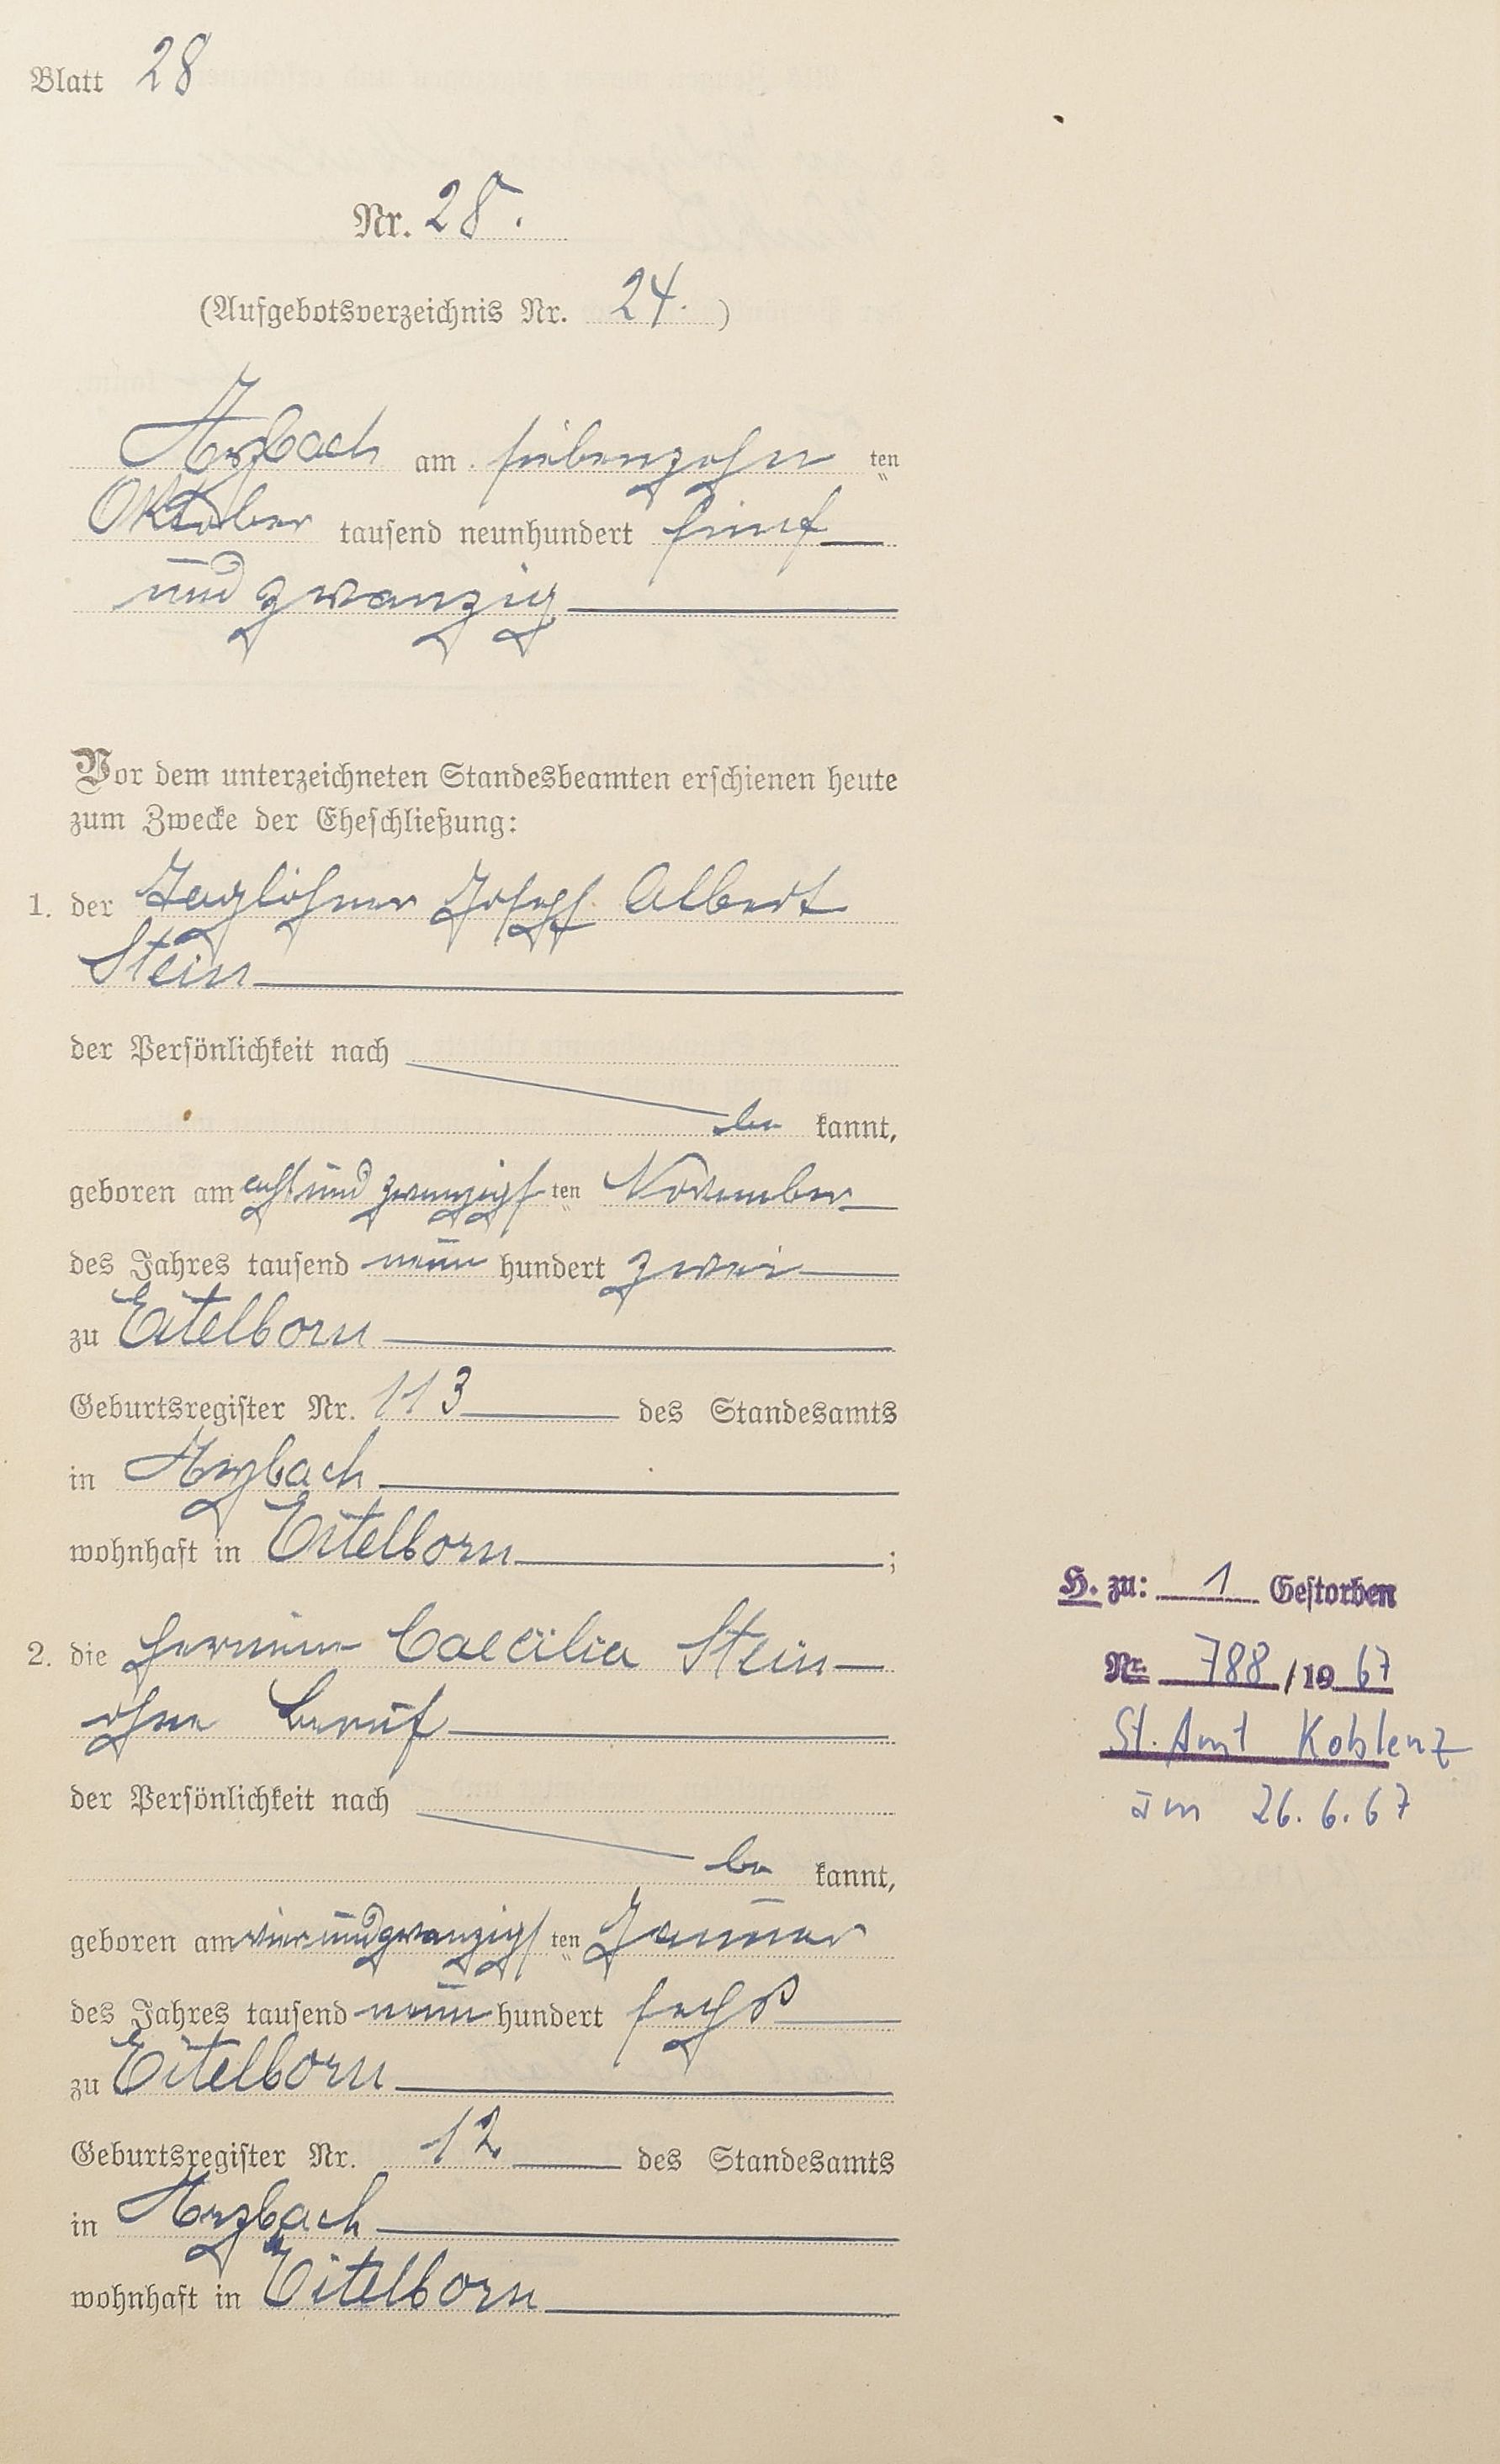 Blatt 28
Nr. 28.
(Aufgebotsverzeichnis Nr. 24.)
Arzbach am siebenzehn ten
Oktober tausend neunhundert fünf
und zwanzig
Vor dem unterzeichneten Standesbeamten erschienen heute
zum Zwecke der Eheschließung:
1. der Taglöhner Joseph Albert
Stein
der Persönlichkeit nach
be kannt,
geboren am acht und zwanzigs ten November
des Jahres tausend neun hundert zwei
zu Eitelborn
Geburtsregister Nr. 113 des Standesamts
in Arzbach
wohnhaft in Eitelborn ;
2. die Caecilia Stein
ohne Beruf
der Persönlichkeit nach
be kannt,
geboren am vier und zwanzigs ten Januar
des Jahres tausend neun hundert sechs
zu Eitelborn
Geburtsregister Nr. 12 des Standesamts
in Arzbach
wohnhaft in Eitelborn
H. zu: 1 Gestorben
Nr. 788 / 19 67
St. Amt Koblenz
am 26.6.67